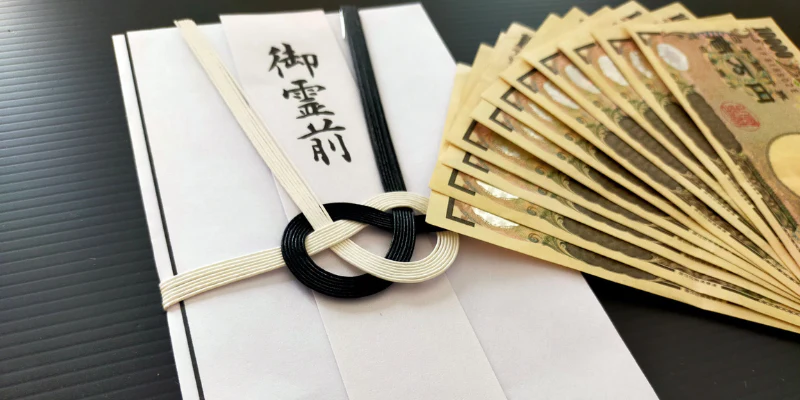 御霊前
10000
壱万円